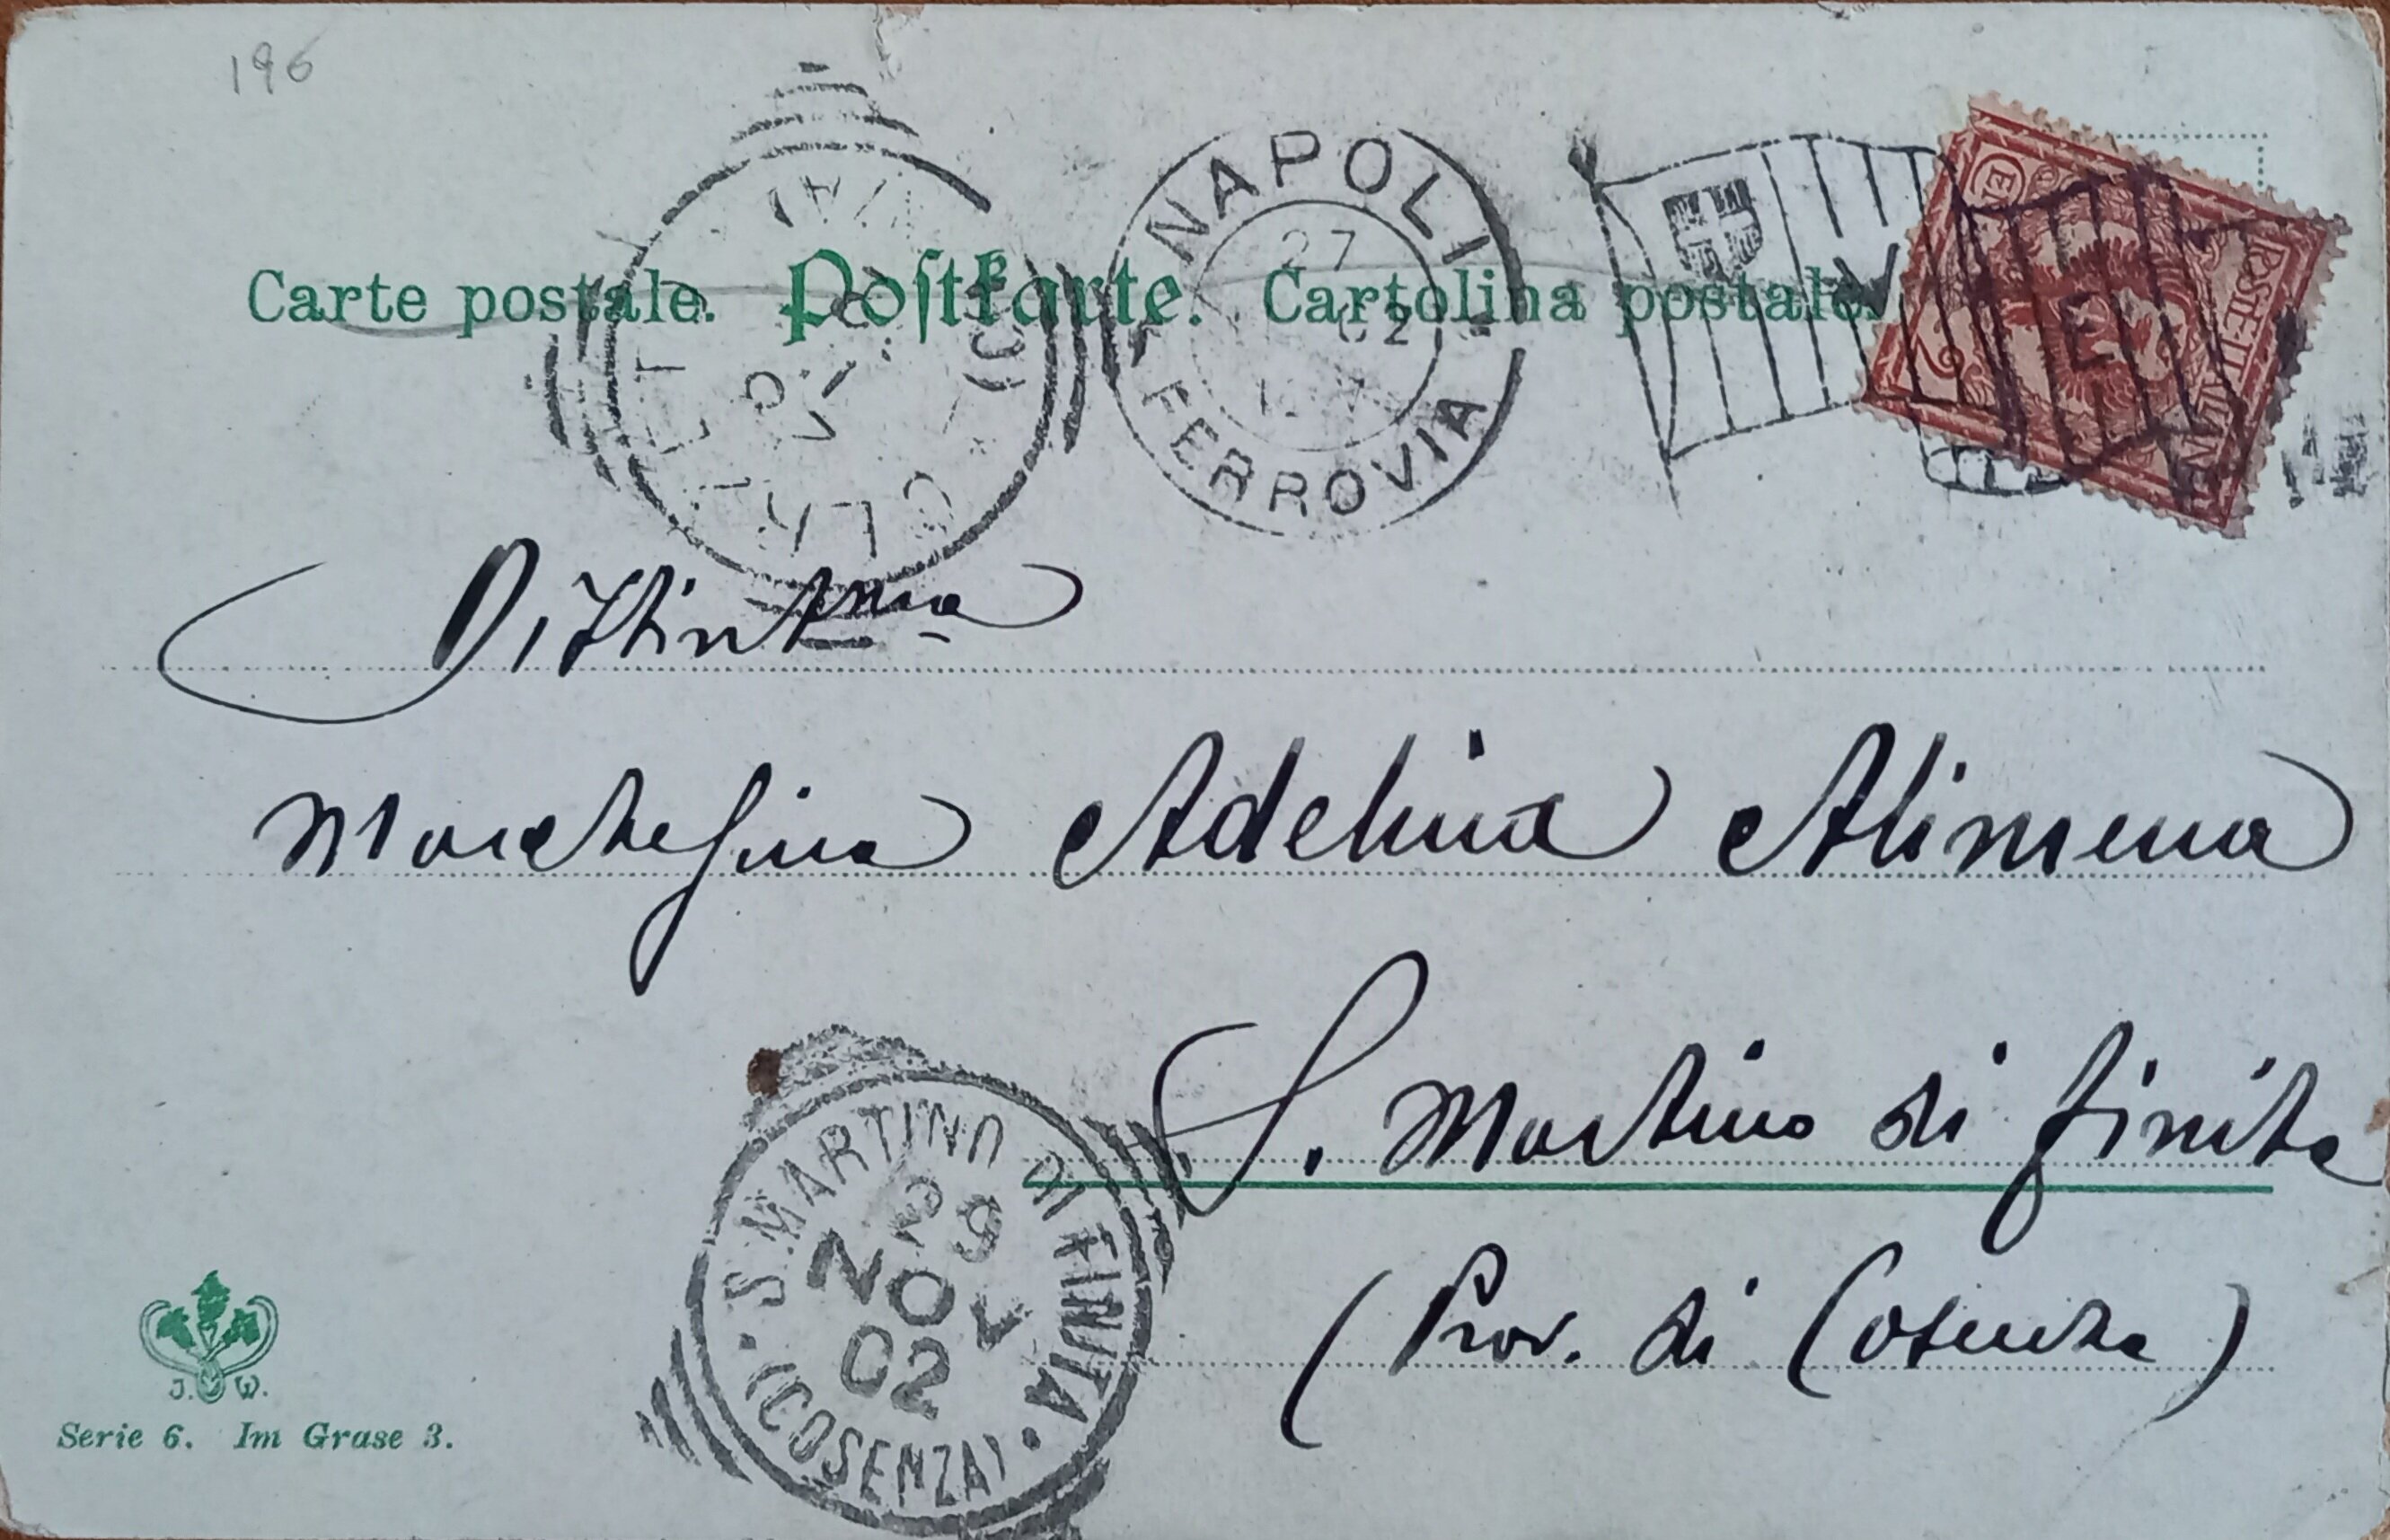 196
NAPOLI
27
02
FERROVIA
Carte postale. Postkarte. Cartolina postale.
POSTE ITALIANE
2
Distintma
Marchesina Adelina Alimena
S. Martino di Finita
(Prov. di Cosenza)
S. MARTINO DI FINITA
29
NOV
02
(COSENZA)
J. W.
Serie 6. Im Grase 3.